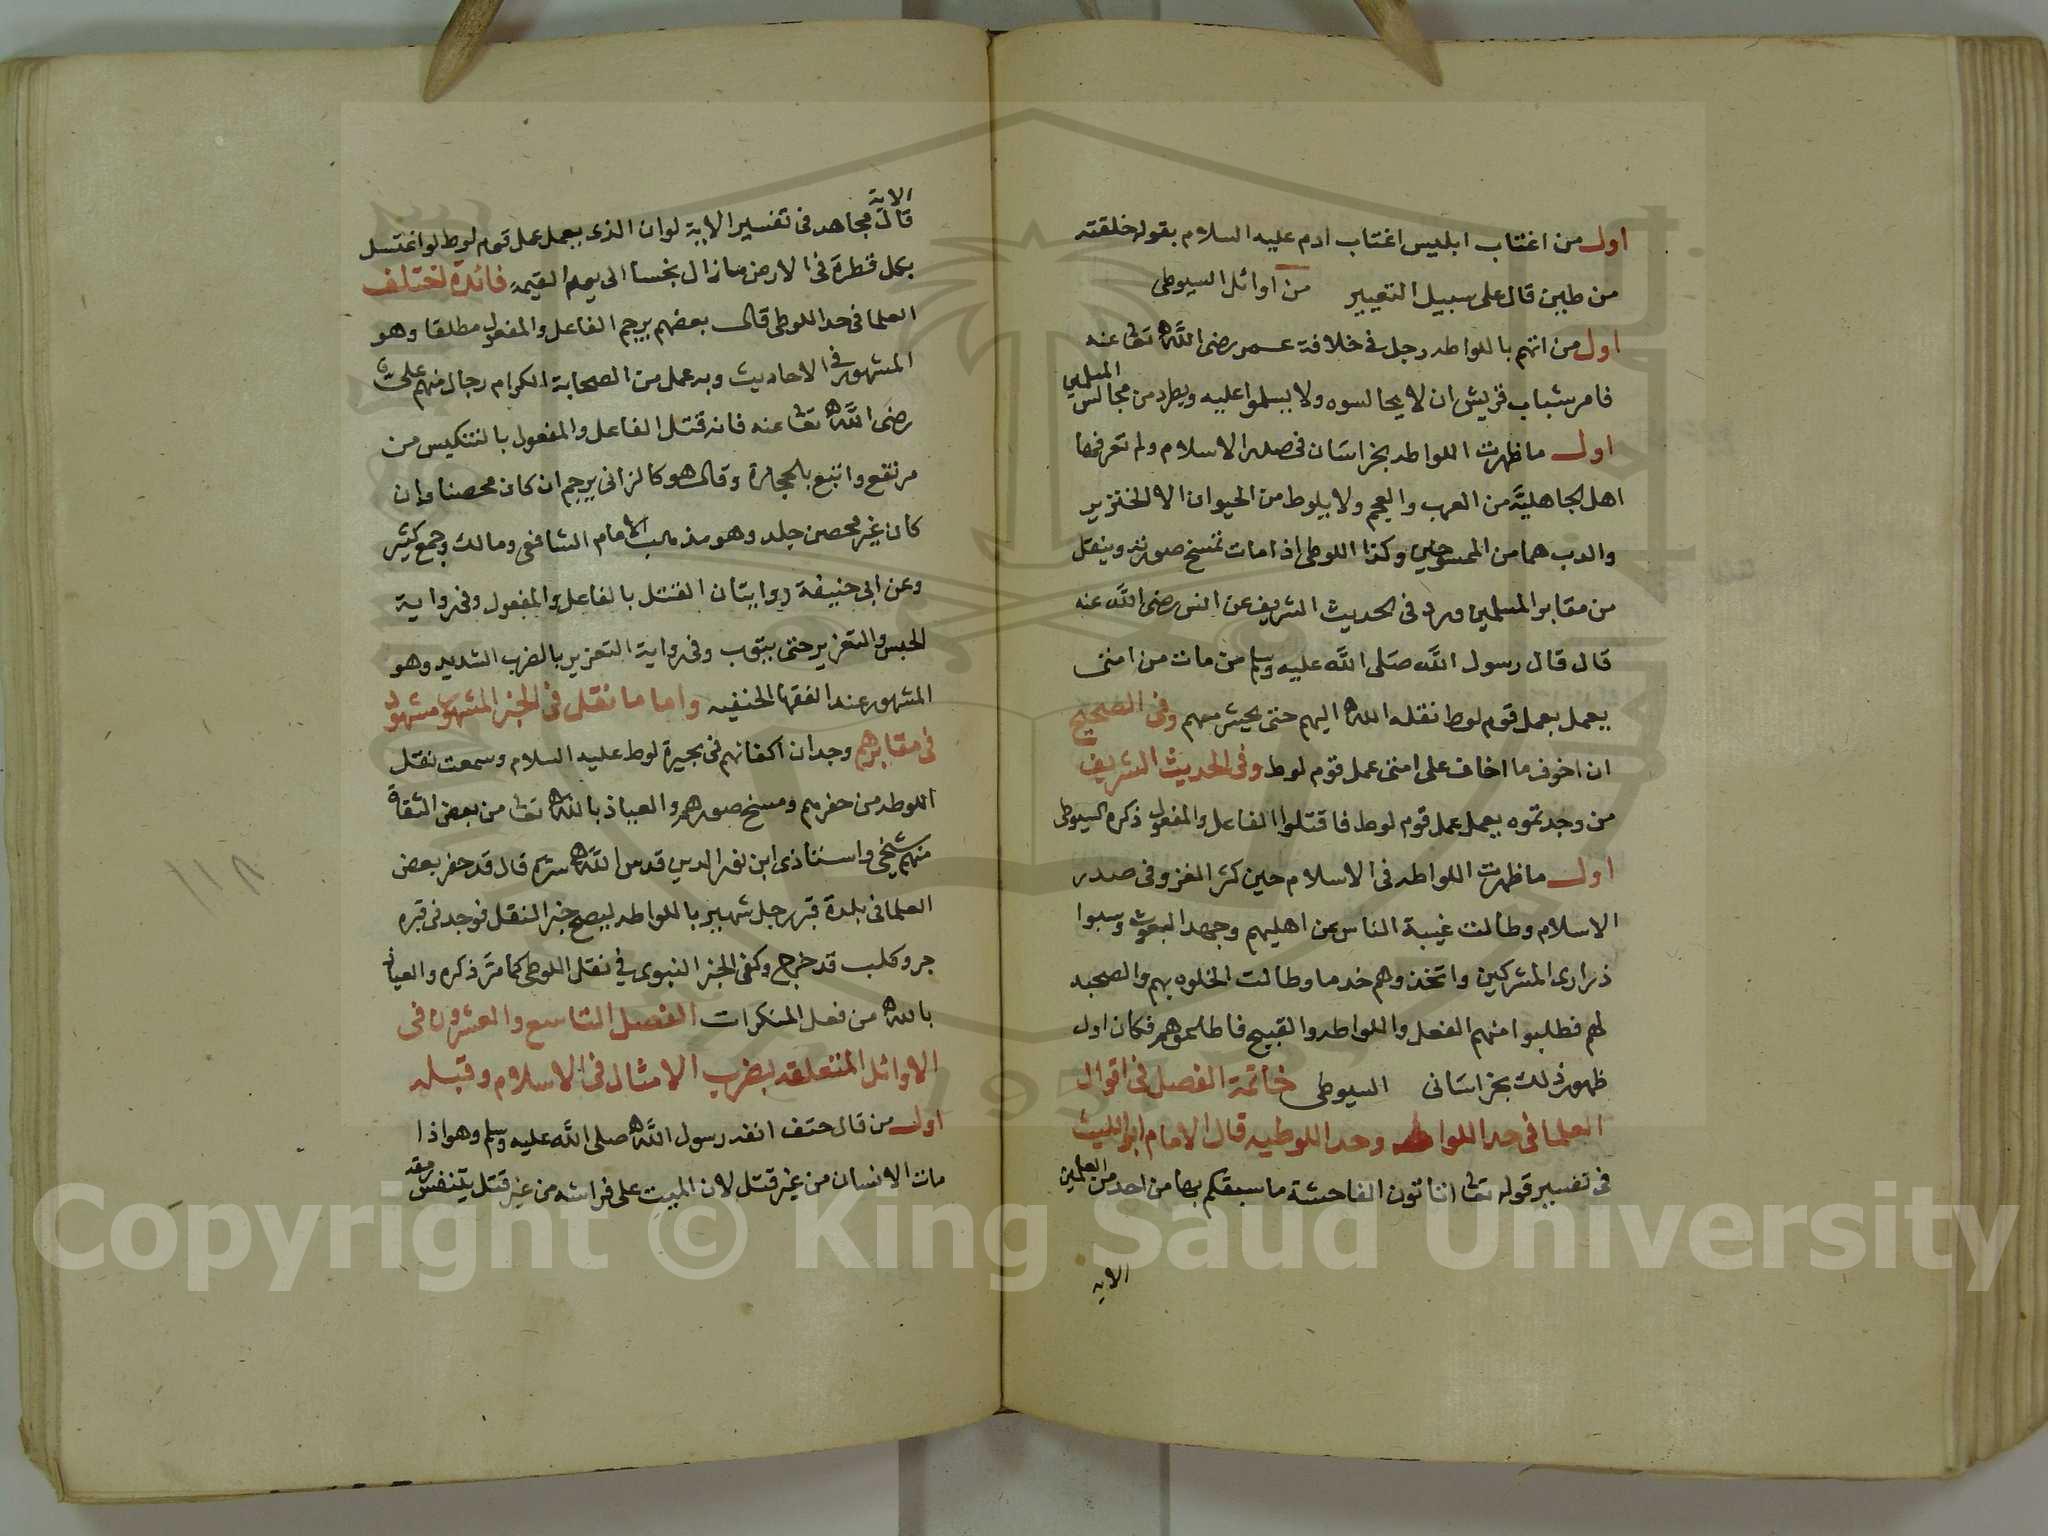 اول من اغتاب ابليس اغتاب ادم عليه السلام بقوله خلقته
من طين قال على سبيل التعيير من اوائل السيوطى
اول من اتهم باللواطه رجل فى خلافة عمر رضى الله تعا عنه
فامر شباب قريش ان لا يجالسوه ولا يسلموا عليه ويطرد من مجالس المسلمين
اول ما ظهرت اللواطه بخراسان فى صدر الاسلام ولم تعرفها
اهل الجاهلية من العرب والعجم ولا يلوط من الحيوان الا الخنزير
والدب هما من الممسوخين وكذا اللوطى اذا مات تمسخ صورته وينقل
من مقابر المسلمين ورد فى الحديث الشريف عن انس رضى الله عنه
قال قال رسول الله صلى الله عليه وسلم من مات من امتى
يعمل بعمل قوم لوط نقله الله اليهم حتى يحشر معهم وفى الصحيح
ان اخوف ما اخاف على امتى عمل قوم لوط وفى الحديث الشريف
من وجدتموه يعمل عمل قوم لوط فاقتلوا الفاعل والمفعول ذكره السيوطى
اول ما ظهرت اللواطه فى الاسلام حين كثر الغزو فى صدر
الاسلام وطالت غيبة الناس عن اهليهم وجهد البعوث وسبوا
ذرارى المشركين واتخذوهم خدما وطالت الخلوه بهم والصحبه
لهم فطلبوا منهم الفعل واللواطه والقبيح فاطاعوهم فكان اول
ظهور ذلك بخراسانى السيوطى خاتمة الفصل فى اقوال
العلما فى حد اللواطه وحد اللوطيه قال الامام ابو الليث
فى تفسير قوله تعا اتاتون الفاحشة ما سبقكم بها من احد من العلمين
الايه
الاية
قال مجاهد فى تفسير الاية لو ان الذى يعمل عمل قوم لوط لو اغتسل
بكل قطرة فى الارض ما زال نجسا الى يوم القيمة فائدة اختلف
العلما فى حد اللوطى قال بعضهم يرجم الفاعل والمفعول مطلقا وهو
المشهور فى الاحاديث وبه عمل من الصحابة الكرام رجال منهم على
رضى الله تعا عنه فانه قتل الفاعل والمفعول بالتنكيس من
مرتفع واتبع بالحجارة وقال هو كالزانى يرجم ان كان محصنا وان
كان غير محصن جلد وهو مذهب الامام الشافعى ومالك وجمع كثير
وعن ابى حنيفة روايتان القتل بالفاعل والمفعول وفى رواية
الحبس والتعزير حتى يتوب وفى رواية التعزير بالضرب الشديد وهو
المشهور عند الفقها الحنفيه واما ما نقل فى الخبر المشهور مشهود
فى مقابرهم وجدان اكفانهم فى بحيرة لوط عليه السلام وسمعت نقل
اللوطه من حفرهم ومسخ صورهم والعياذ بالله تعا من بعض الثقاة
منهم شيخى واستاذى ابن نور الدين قدس الله سره قال قد حفر بعض
العلما فى بلدة قبر رجل شهير باللواطه ليصح خبر النقل فوجد فى قبره
جرو كلب قد خرج وكفى الخبر النبوى فى نقل اللوطى كما مر ذكره والعياذ
بالله من فعل المنكرات الفصل التاسع والعشرون فى
الاوائل المتعلقه بضرب الامثال فى الاسلام وقبله
اول من قال حتف انفه رسول الله صلى الله عليه وسلم وهو اذا
مات الانسان من غير قتل لان الميت على فراشه من غير قتل يتنفس
Copyright © King Saud University
1957